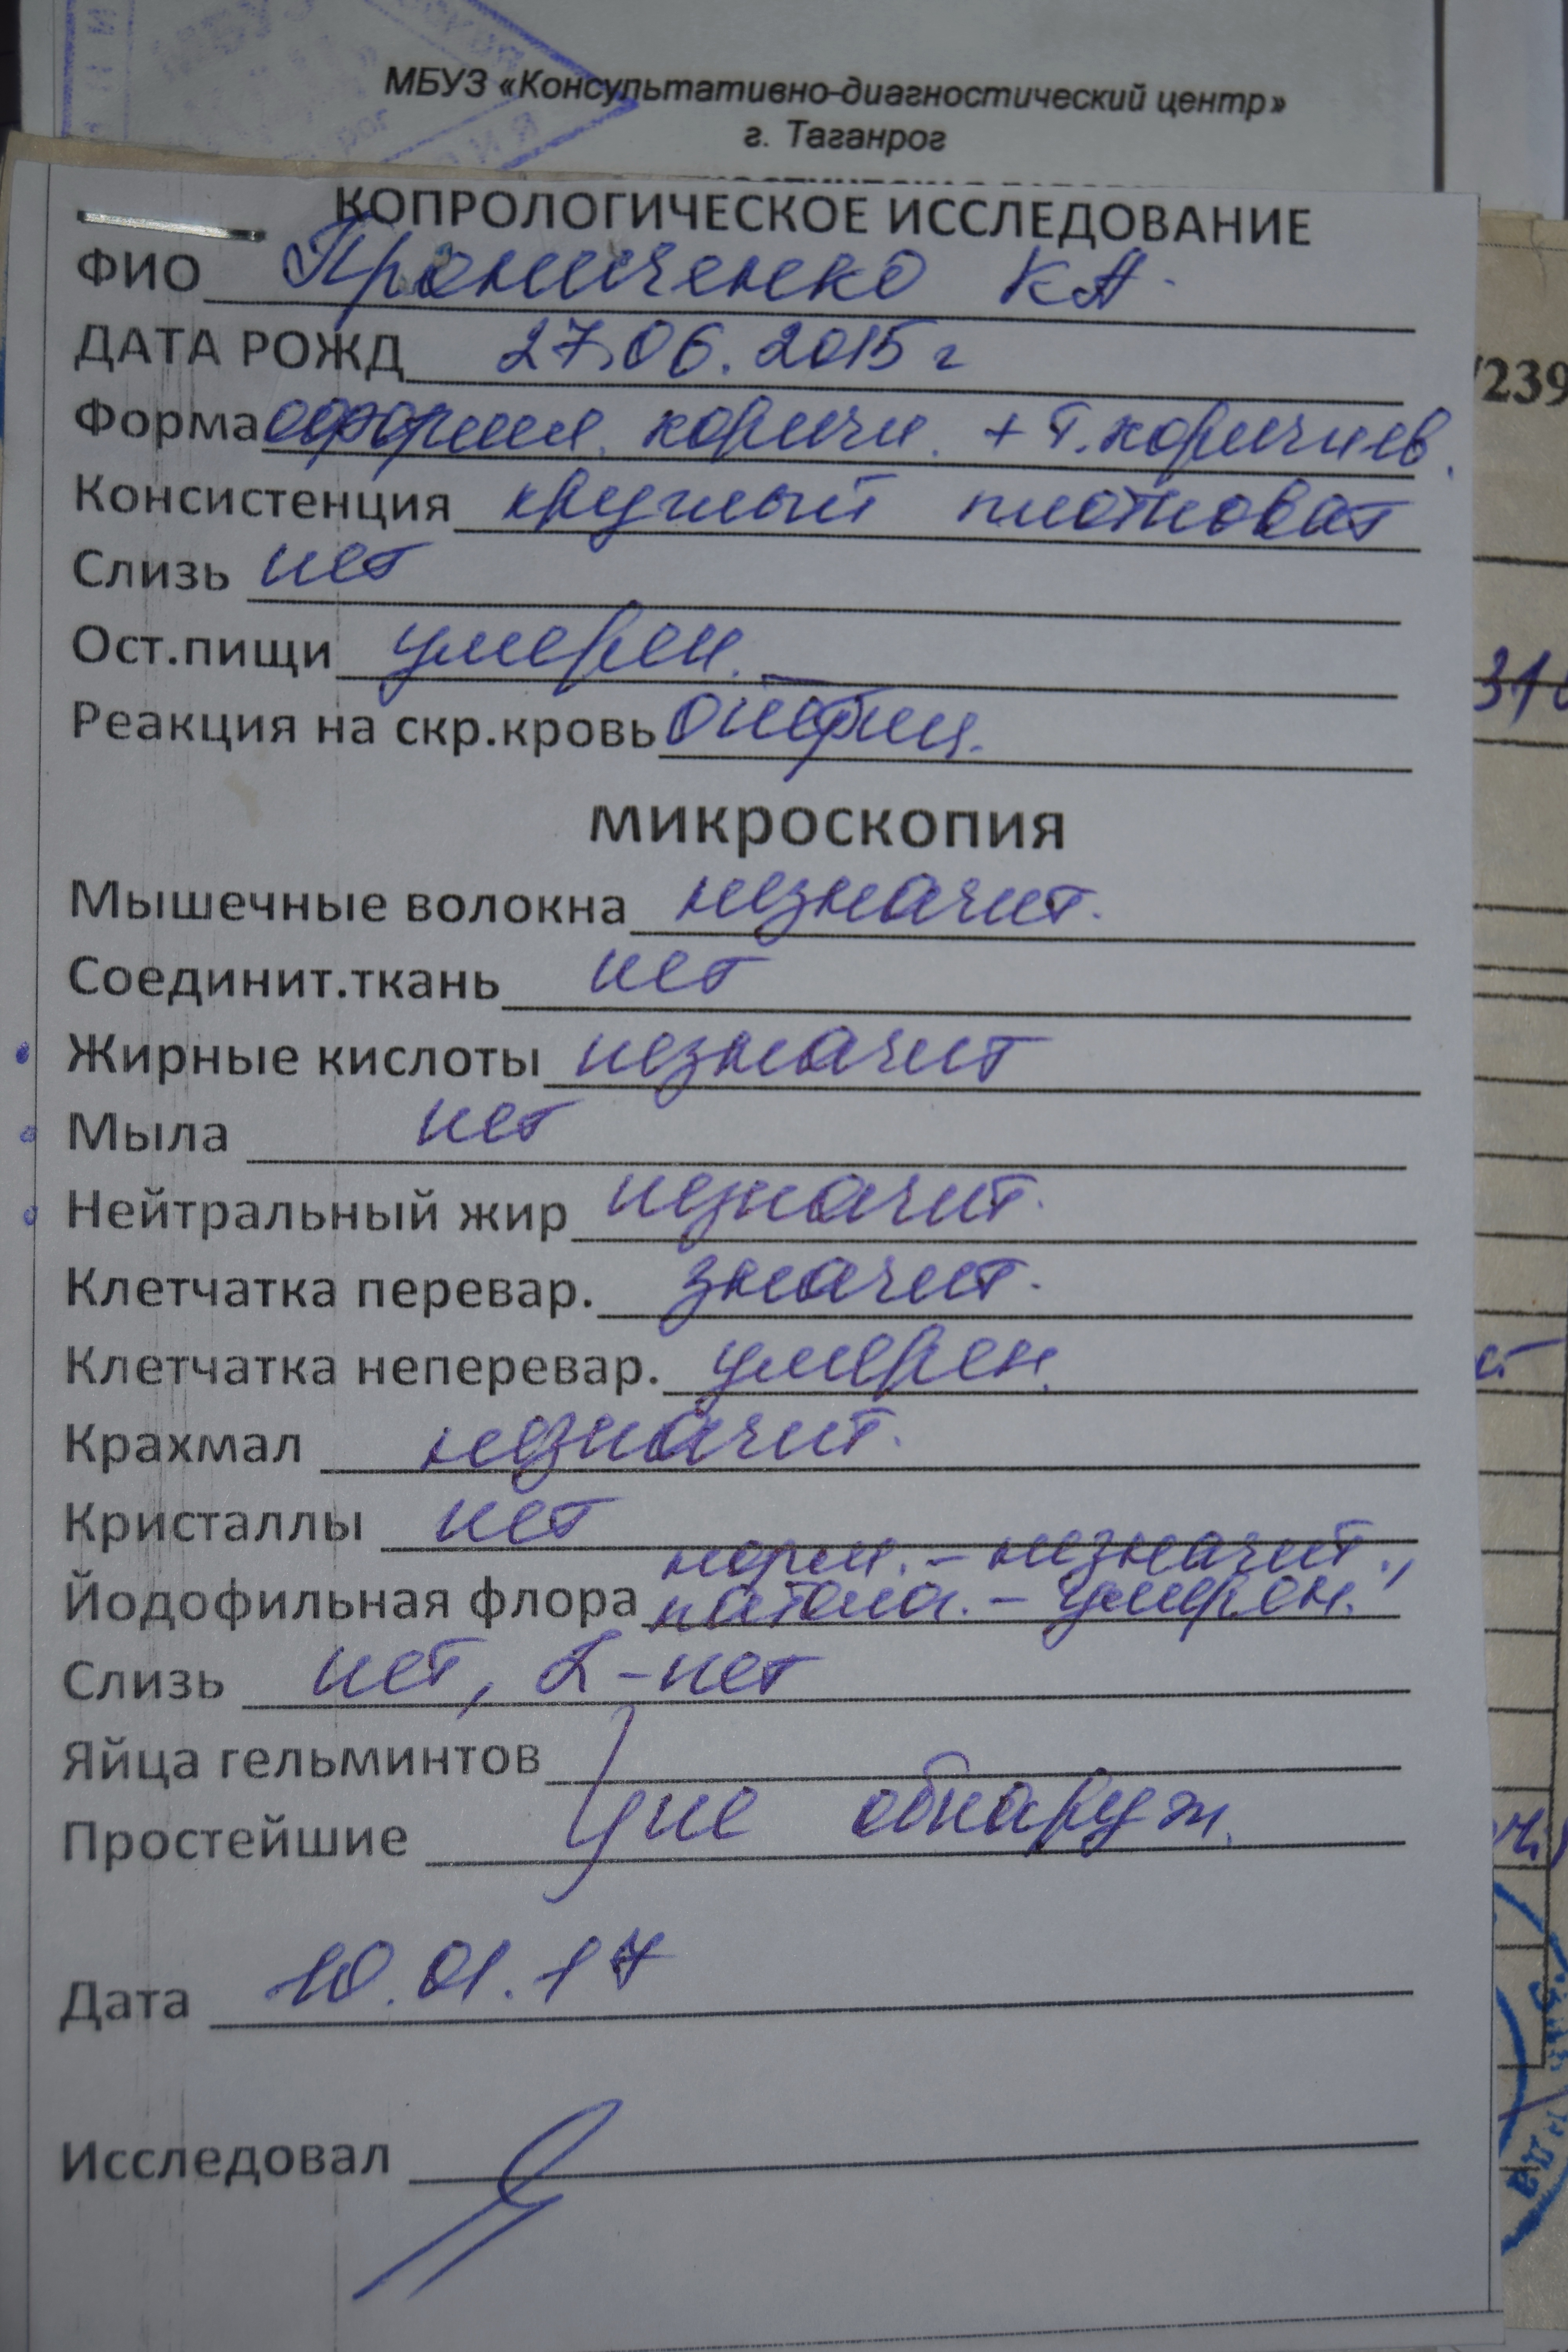 МБУЗ «Консультативно-диагностический центр»
г. Таганрог
КОПРОЛОГИЧЕСКОЕ ИССЛЕДОВАНИЕ
ФИО Прониченко К А.
ДАТА РОЖД 27.06.2015 г
Форма оформл. коричн. + т.коричнев.
Консистенция круглый плотноват
Слизь нет
Ост.пищи умерен.
Реакция на скр.кровь отриц.
МИКРОСКОПИЯ
Мышечные волокна незначит.
Соединит.ткань нет
Жирные кислоты незначит
Мыла нет
Нейтральный жир незначит.
Клетчатка перевар. значит.
Клетчатка неперевар. умерен.
Крахмал незначит.
Кристаллы нет
норм. - незначит.,
Йодофильная флора патол. - умерен.
Слизь нет, L - нет
Яйца гельминтов
Простейшие не обнаруж.
Дата 10.01.17
Исследовал
239
310